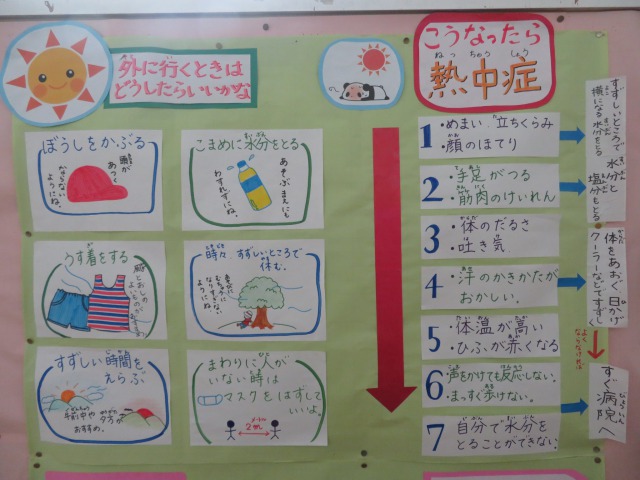 外に行くときは
どうしたらいいかな
ぼうしをかぶる
頭が
あつく
ならない
ようにね。
こまめに水分をとる
あそぶまえにも
わすれずにね。
うす着をする
時々 すずしいところで
休む。
ようにね。
すずしい時間を
えらぶ
夕方が
おすすめ。
まわりに人が
いない時は
マスクをはずして
いいよ。
2m
こうなったら
ねっちゅうしょう
熱中症
1 ・めまい ・立ちくらみ
・顔のほてり
2 ・手足がつる
・筋肉のけいれん
3 ・体のだるさ
・吐き気
4 ・汗のかきかたが
おかしい。
5 ・体温が高い
・ひふが赤くなる
6 ・声をかけても反応しない。
・まっすぐ歩けない。
7 自分で水分を
とることができない。
すずしいところで 水分と
横になる 水分をとる 塩分もとる
体をあおぐ 日かげ
クーラーなどですずしく
よく
ならなければ
すぐ病院へ